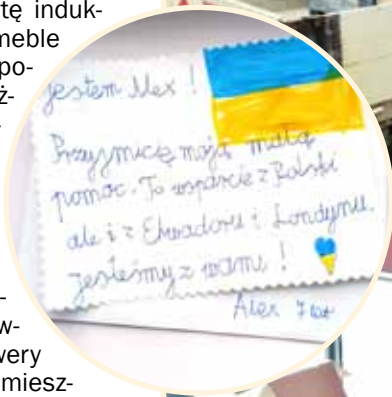 tę induk-
meble
po-
ż-
-
w-
wery
miesz-
jestem Alex !
Przyjmicię moją małą
pomoc. To wsparcie z Polski
ale i z Ekwadoru i Londynu.
jesteśmy z wami !
Alex 7 lat